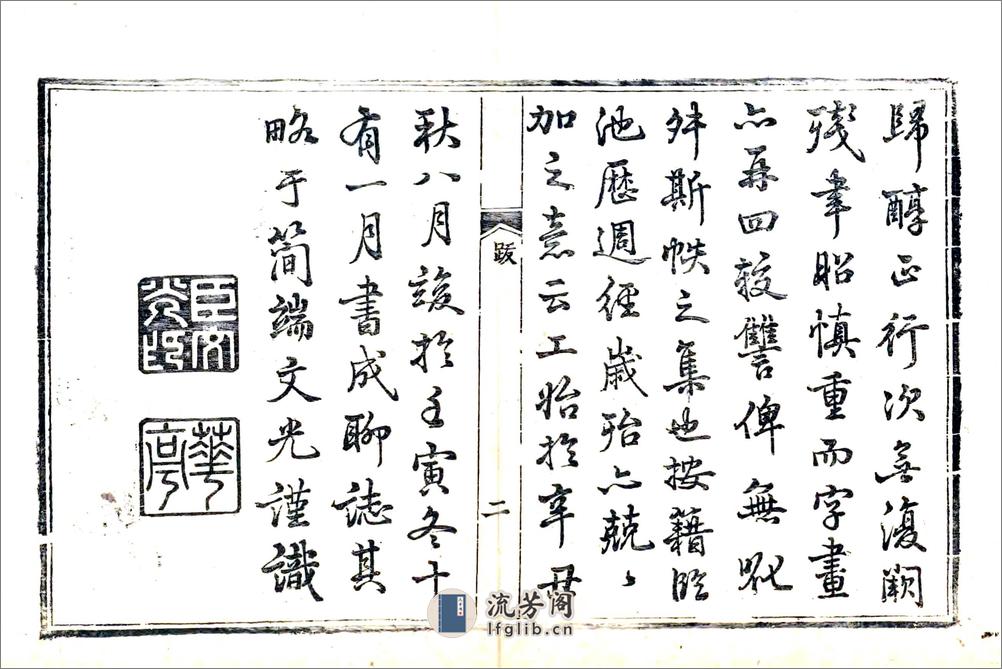 歸醇正行次無復闕
殘聿昭慎重而字畫
亦再四校讐俾無訛
舛斯帙之集也按籍臨
池歷週經歲殆亦兢〻
加之意云工始於辛丑
秋八月竣於壬寅冬十
有一月書成聊誌其
略于簡端文光謹識
跋
二
臣文光印
華亭
流芳阁
lfglib.cn